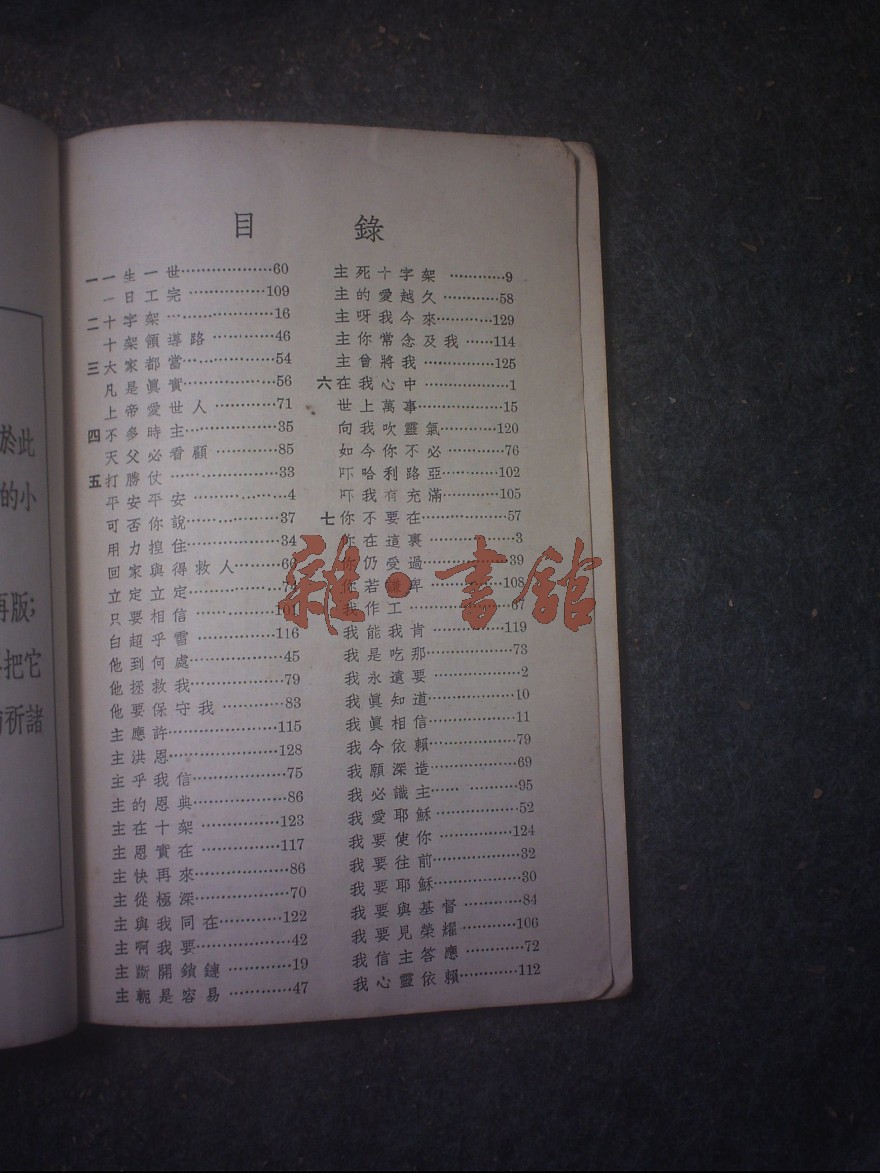 於此
的小
再版;
把它
祈諸
目錄
一 一生一世··················60
一日工完 ················109
二 十字架··· ···············16
十架領導路 ···············46
三 大家都當··················54
凡是眞實··················56
上帝愛世人 ···············71
四 不多時主··················35
天父必看顧 ···············85
五 打勝仗 ·····················33
平安平安 ··················4
可否你說··················37
用力揑住··················34
回家與得救人·········66
立定立定··················74
只要相信 ···············101
白超乎雪 ···············116
他到何處··················45
他拯救我··················79
他要保守我 ············83
主應許·····················115
主洪恩·····················128
主乎我信··················75
主的恩典··················86
主在十架 ···············123
主恩實在··················117
主快再來 ··················86
主從極深··················70
主與我同在············122
主啊我要··················42
主斷開鎖鏈 ············19
主軛是容易 ············47
主死十字架 ············9
主的愛越久 ············58
主呀我今來············129
主你常念及我 ······114
主曾將我 ···············125
六 在我心中 ··················1
世上萬事··················15
向我吹靈氣············120
如今你不必 ············76
吓哈利路亞············102
吓我有充滿············105
七 你不要在··················57
你在這裏 ··················3
你仍受過··················39
你若謙卑 ···············108
我作工 ·····················67
我能我肯 ···············119
我是吃那··················73
我永遠要 ··················2
我眞知道··················10
我眞相信··················11
我今依賴··················79
我願深造··················69
我必識主······ ·········95
我愛耶穌··················52
我要使你 ···············124
我要往前··················32
我要耶穌··················30
我要與基督 ············84
我要見榮耀············106
我信主答應 ············72
我心靈依賴············112
雜·書館